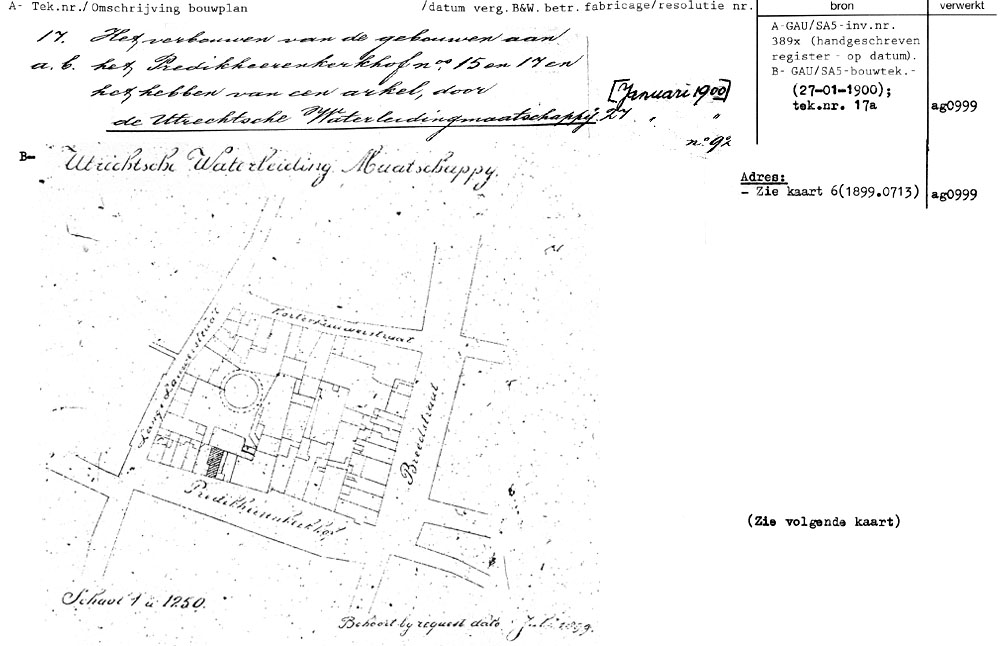 A- Tek.nr./Omschrijving bouwplan /datum verg.B&W. betr. fabricage/resolutie nr. bron verwerkt
17. Het verbouwen van de gebouwen aan
a. b. het Predikheerenkerkhof nos 15 en 17 en
het hebben van een arkel, door
de Utrechtsche Waterleidingmaatschappij. 27 " "
[Januari 1900]
no 92
A-GAU/SA5-inv.nr.
389x (handgeschreven
register - op datum).
B- GAU/SA5-bouwtek.-
(27-01-1900);
tek.nr. 17a ag0999
Adres:
- Zie kaart 6(1899.0713) ag0999
B- Utrichtsche Waterleiding Maatschappy.
Lange Lauwerstraat
Breedstraat
Predikheerenkerkhof
(Zie volgende kaart)
Schaal 1 à 1250.
Behoort by request dato Juli 1899.